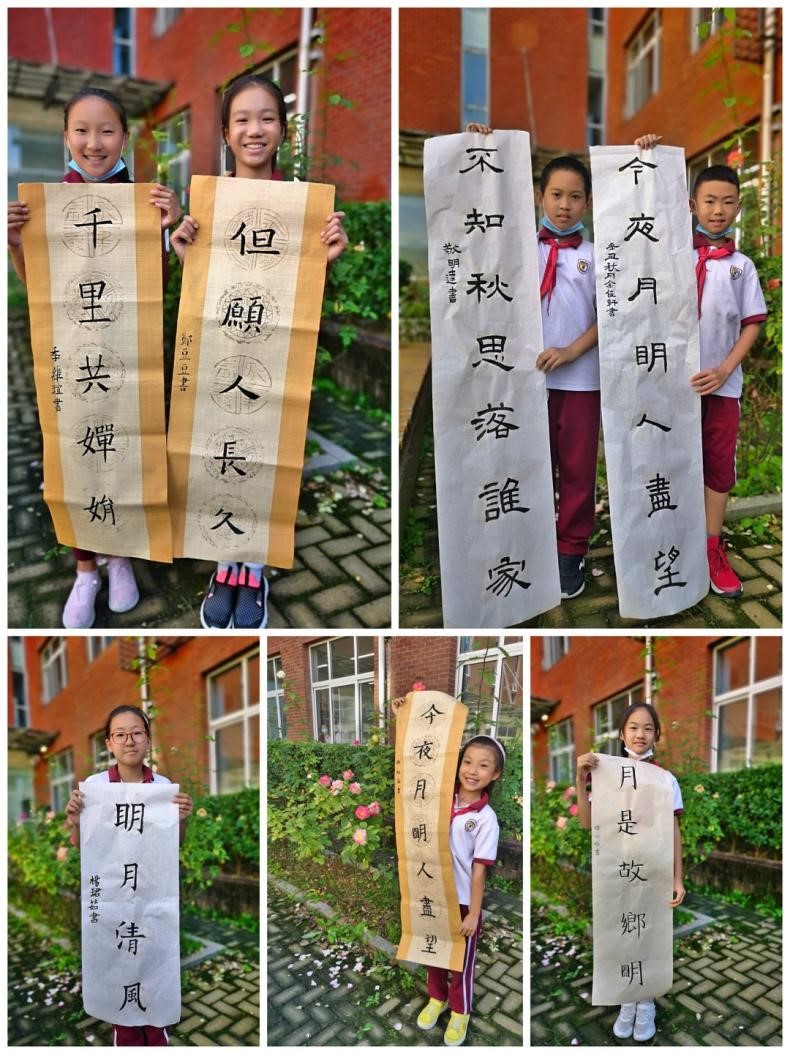 千里共嬋娟
季維瑄書
但願人長久
鄭豆豆書
不知秋思落誰家
敬明達書
今夜月明人盡望
辛丑秋月余佳軒書
明月清風
楊珺茹書
今夜月明人盡望
月是故鄉明